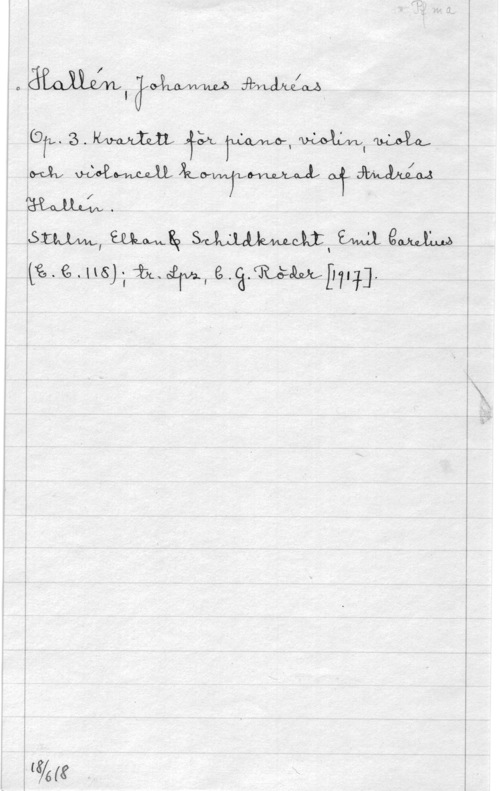 Pf ma
Hallén, Johannes Andréas
Op. 3. Kvartett för piano, violin, viola
och violoncell komponerad af Andréas
Hallén.
Sthlm, Elkan & Schildknecht, Emil Carelius
(E. C. 118); tr. Lpz, C. G. Röder [1917].
18/6 18